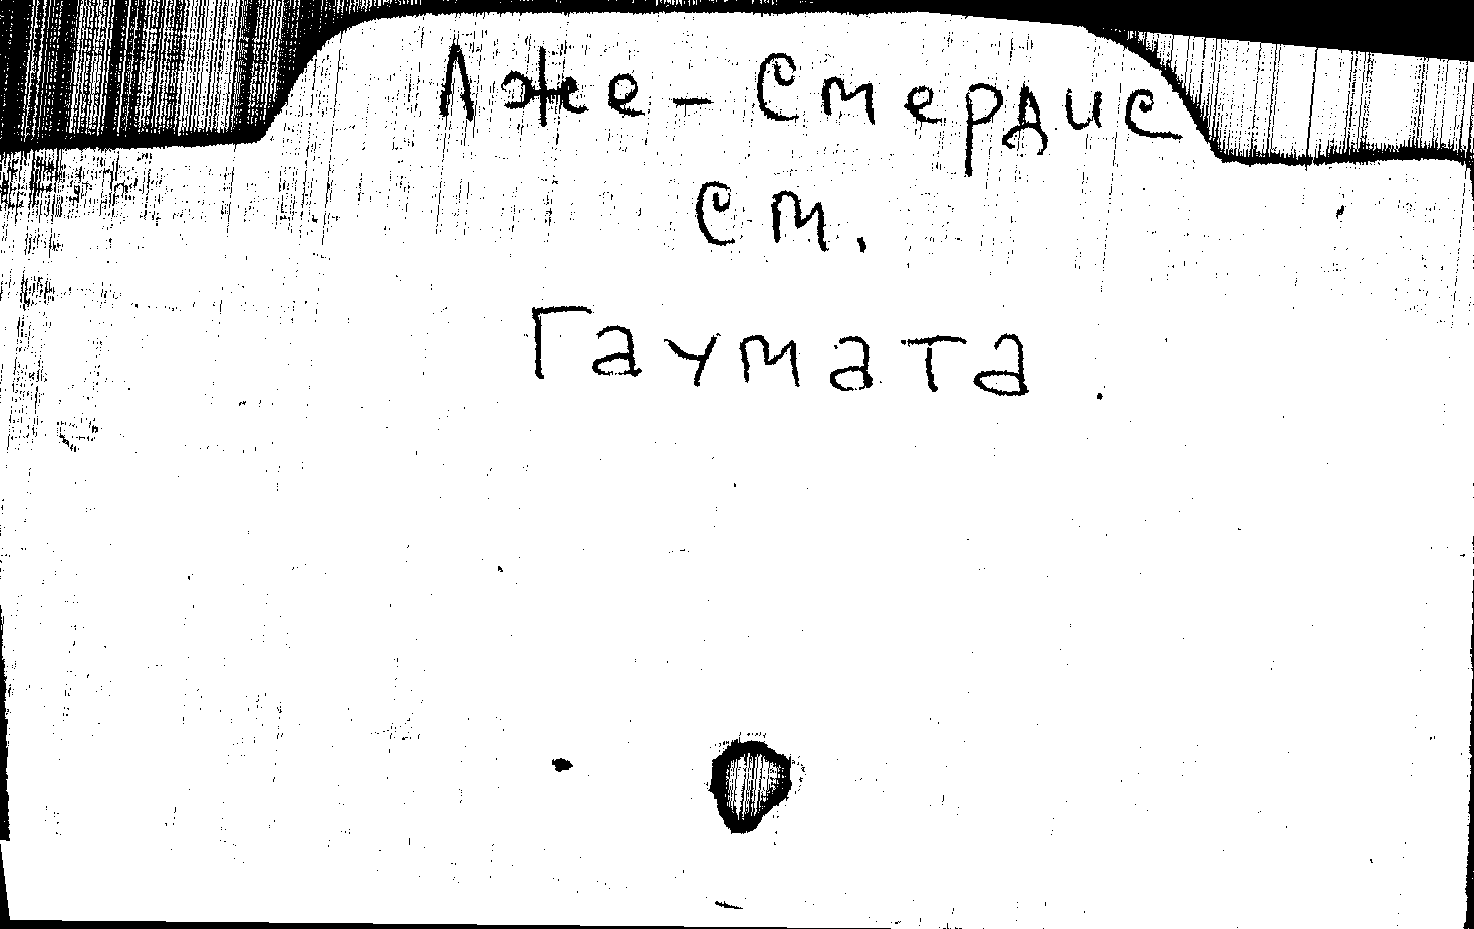 Лже-Смердис
см.
Гаумата.